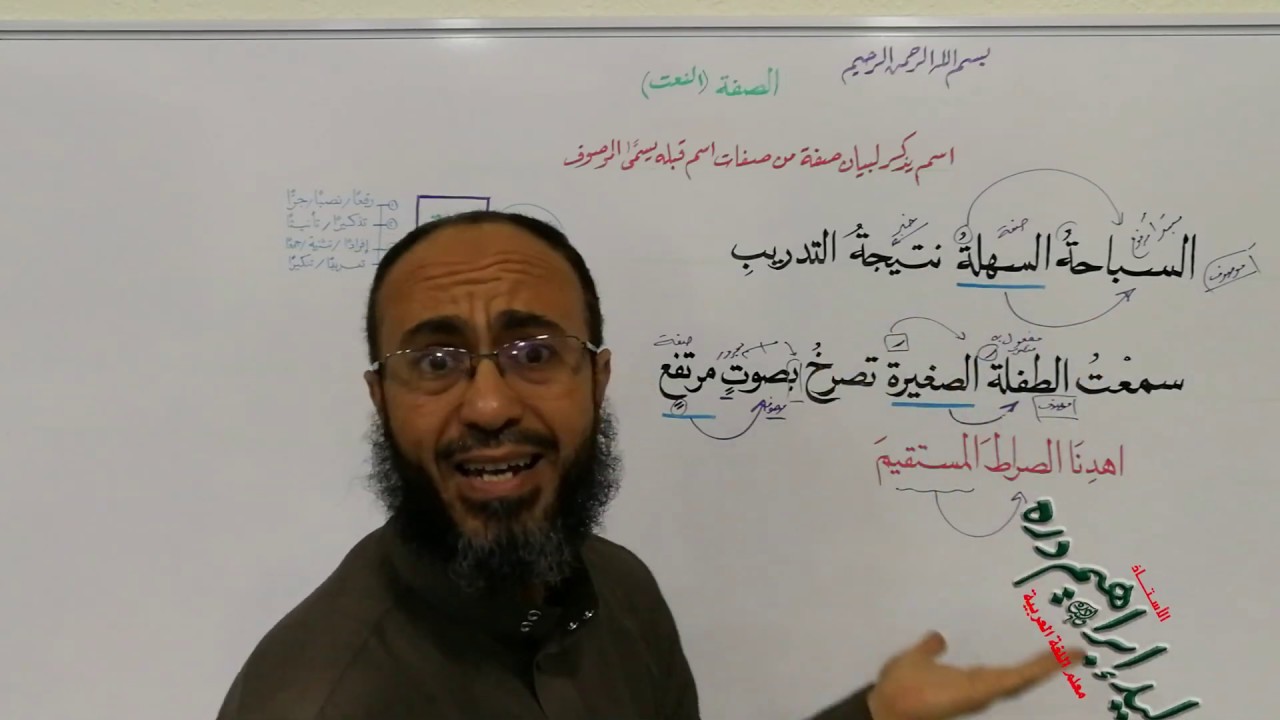 بسم الله الرحمن الرحيم
الصفة (النعت)
اسم يذكر لبيان صفة من صفات اسم قبله يسمَّى الموصوف
رفعًا/نصبًا/جرًّا
تذكيرًا/تأنيثًا
إفرادًا/تثنية/جمعًا
تعريفًا/تنكيرًا
صفة خبر
موصوف
السباحةُ السهلةُ نتيجةُ التدريبِ
مفعول به منصوب اسم مجرور صفة
سمعْتُ الطفلةَ الصغيرةَ تصرخُ بصوتٍ مرتفعٍ
موصوف موصوف
اهدِنَا الصراطَ المستقيمَ
الأستاذ
إبراهيم دره
معلم اللغة العربية